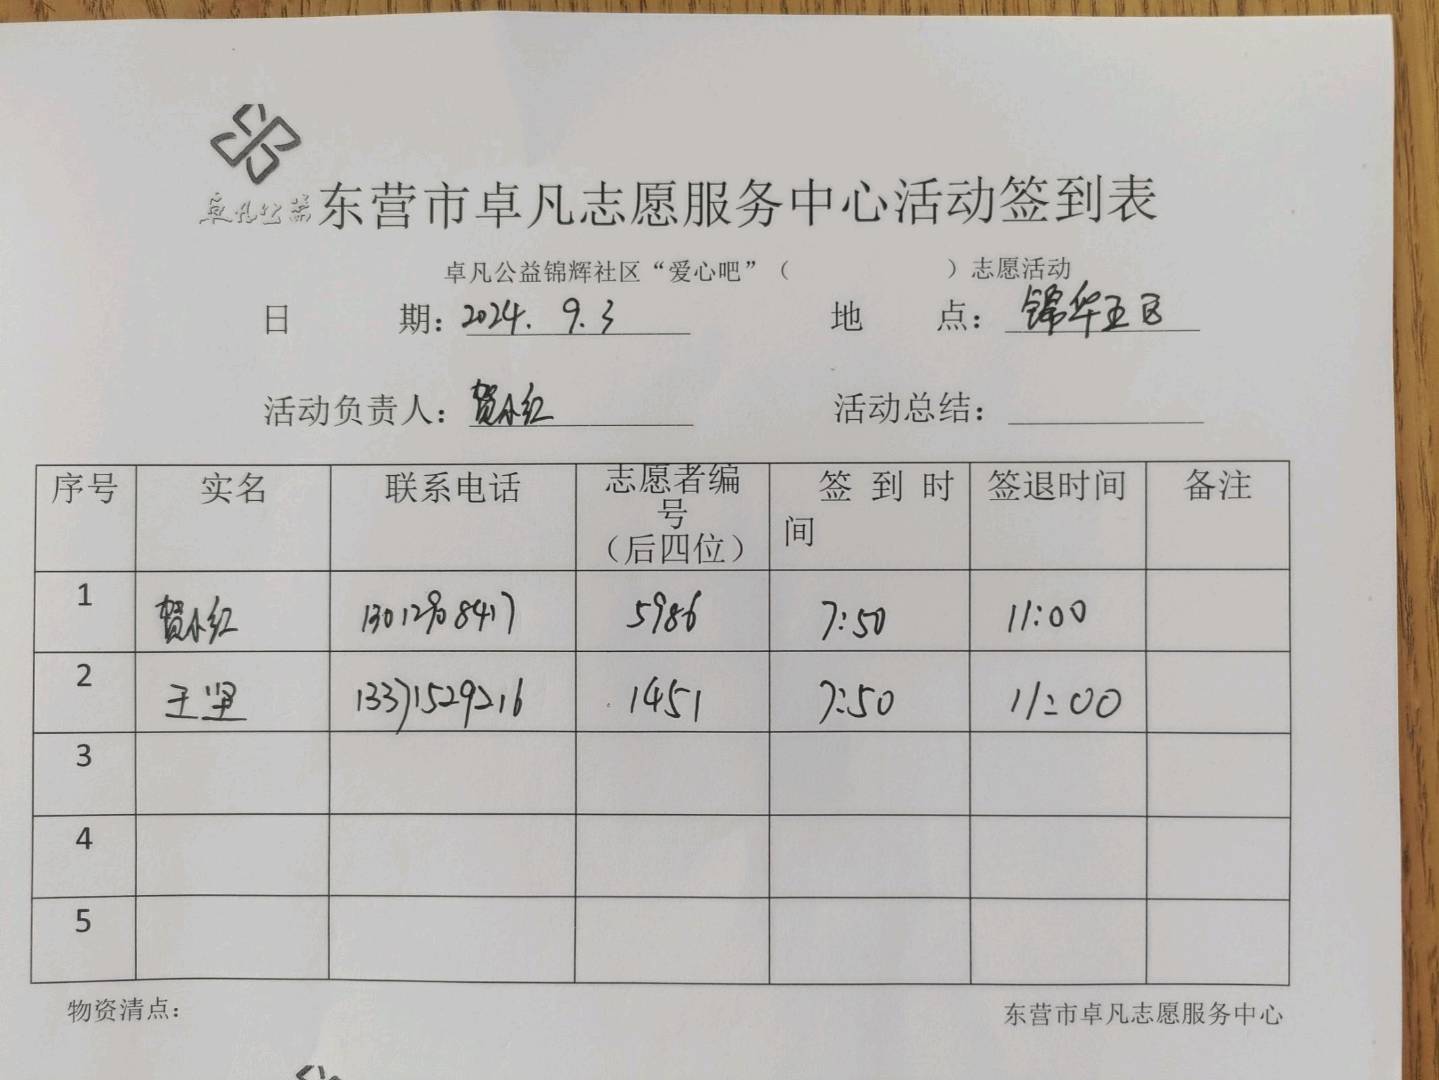 卓凡公益
东营市卓凡志愿服务中心活动签到表
卓凡公益锦辉社区“爱心吧”（ ）志愿活动
日 期：2024.9.3 地 点：锦华五区
活动负责人：贺小红 活动总结：
序号 实名 联系电话 志愿者编号（后四位） 签到时间 签退时间 备注
1 贺小红 13012908417 5986 7:50 11:00
2 王坚 13371529216 1451 7:50 11:00
3
4
5
物资清点： 东营市卓凡志愿服务中心